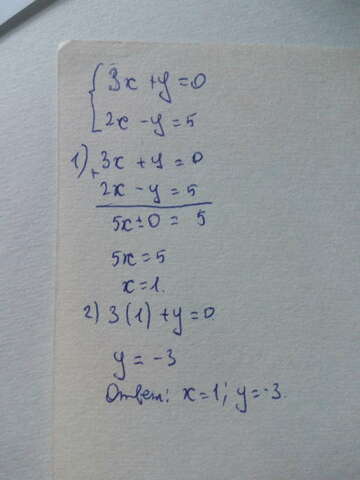 { 3x + y = 0
2x - y = 5
1) + 3x + y = 0
2x - y = 5
5x ± 0 = 5
5x = 5
x = 1.
2) 3(1) + y = 0
y = -3
Ответ: x=1; y=-3.